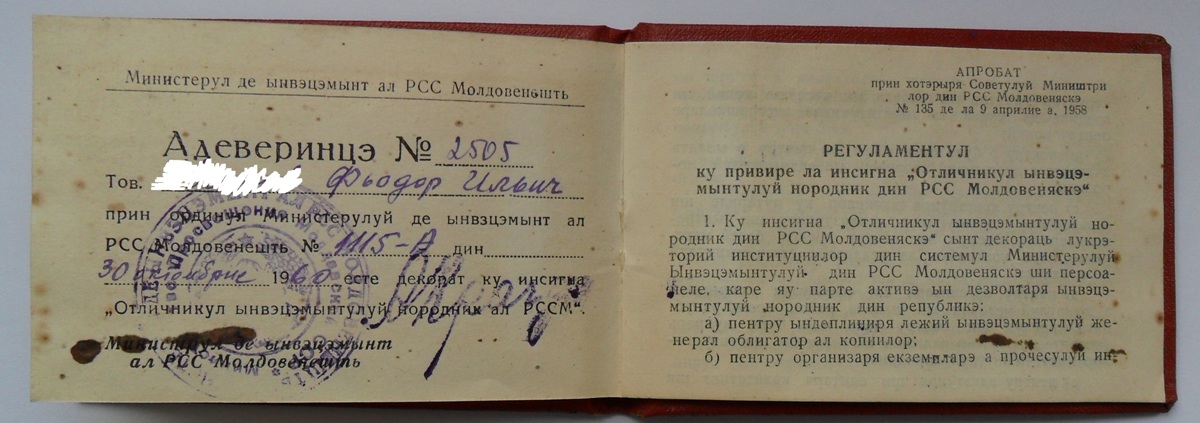 Министерул де ынвэцэмынт ал РСС Молдовенешть
Адеверинцэ № 2505
Тов. Фьодор Ильич
прин ординул Министерулуй де ынвэцэмынт ал
РСС Молдовенешть № 1115-А дин
30 октомбрие 1960 есте декорат ку инсигна
„Отличникул ынвэцэмынтулуй нородник ал РССМ“.
Министрул де ынвэцэмынт
ал РСС Молдовенешть
АПРОБАТ
прин хотэрыря Советулуй Миништри
лор дин РСС Молдовеняскэ
№ 135 де ла 9 априлие а. 1958
РЕГУЛАМЕНТУЛ
ку привире ла инсигна „Отличникул ынвэцэ-
мынтулуй нородник дин РСС Молдовеняскэ“
1. Ку инсигна „Отличникул ынвэцэмынтулуй но-
родник дин РСС Молдовеняскэ“ сынт декораць лукрэ-
торий институциилор дин системул Министерулуй
Ынвэцэмынтулуй дин РСС Молдовеняскэ ши персоа-
неле, каре яу парте активэ ын дезволтаря ынвэцэ-
мынтулуй нородник дин републикэ:
а) пентру ындеплиниря лежий ынвэцэмынтулуй же-
нерал облигатор ал копиилор;
б) пентру организаря екземпларэ а прочесулуй ин-